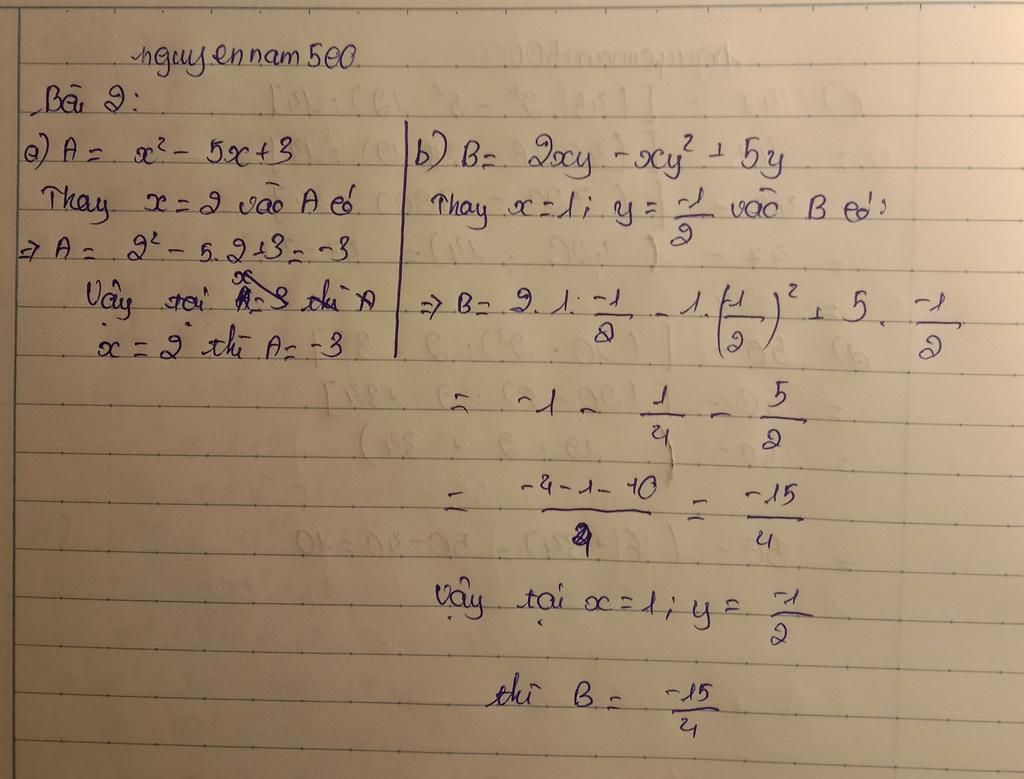 nguyennam500
Bài 2:
a) A = x² - 5x + 3
Thay x = 2 vào A có
=> A = 2² - 5.2 + 3 = -3
Vậy tại x = 3 thì A
x = 2 thì A = -3
b) B = 2xy - xy² + 5y
Thay x = 1; y = -1/2 vào B có:
=> B = 2.1.-1/2 - 1.(-1/2)² + 5.-1/2
= -1 - 1/4 - 5/2
= -4-1-10/4 = -15/4
Vậy tại x = 1; y = -1/2
thì B = -15/4